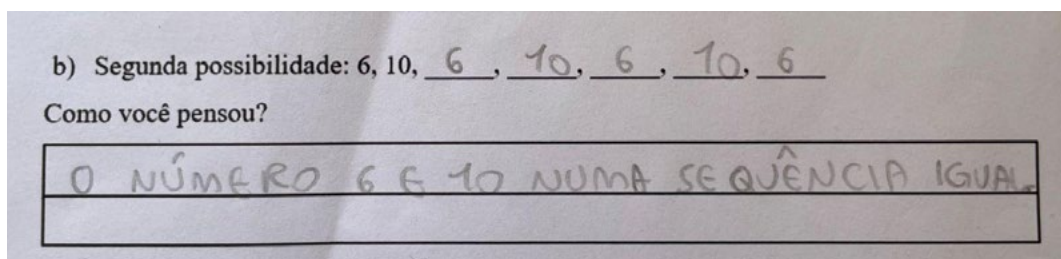 b) Segunda possibilidade: 6, 10, 6, 10, 6, 10, 6
Como você pensou?
O NÚMERO 6 E 10 NUMA SEQUÊNCIA IGUAL.